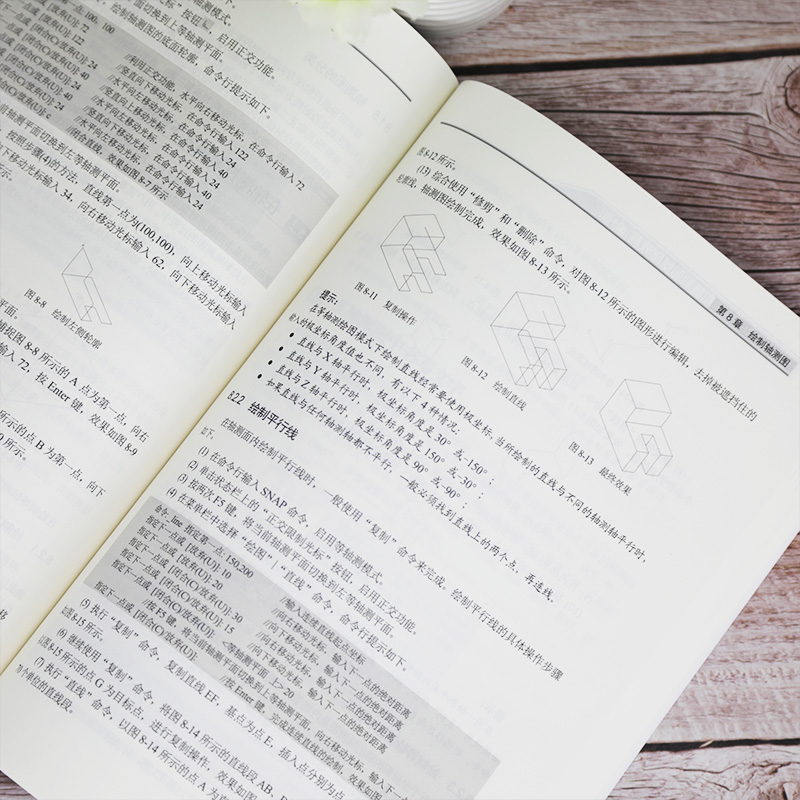 测模式。
按钮，启用正交功能。
面切换到上等轴测平面。
绘制轴测图的底面轮廓，命令行提示如下。
一点: 100, 100
[放弃(U)]: 72
[放弃(U)]: 122
[闭合(C)/放弃(U)]: 24
[闭合(C)/放弃(U)]: 40
[闭合(C)/放弃(U)]: 24
[闭合(C)/放弃(U)]: 40
闭合(C)/放弃(U)]: 24
合(C)/放弃(U)]: c
//利用正交功能，水平向右移动光标，在命令行输入 72
//竖直向下移动光标，在命令行输入 122
//水平向左移动光标，在命令行输入 24
//竖直向上移动光标，在命令行输入 40
//水平向左移动光标，在命令行输入 24
//竖直向下移动光标，在命令行输入 40
//水平向左移动光标，在命令行输入 24
//闭合直线，效果如图 8-7 所示
前轴测平面切换到左等轴测平面。
按照步骤(4)的方法，直线第一点为(100,100)，向上移动光标输入
下移动光标输入 34，向右移动光标输入 62，向下移动光标输入
图 8-8 绘制左侧轮廓
平面。
捕捉图 8-8 所示的 A 点为第一点，向右
输入 72，按 Enter 键，效果如图 8-9
所示的点 B 为第一点，向下
所示。
第 8 章 绘制轴测图
图 8-12 所示。
(13) 综合使用“修剪”和“删除”命令，对图 8-12 所示的图形进行编辑，去掉被遮挡住的
轮廓线，轴测图绘制完成，效果如图 8-13 所示。
图 8-11 复制操作
图 8-12 绘制直线
图 8-13 最终效果
提示：
在等轴测绘图模式下绘制直线经常要使用极坐标，当所绘制的直线与不同的轴测轴平行时，
输入的极坐标角度值也不同，有以下 4 种情况：
● 直线与 X 轴平行时，极坐标角度是 30° 或 -150°；
● 直线与 Y 轴平行时，极坐标角度是 150° 或 -30°；
● 直线与 Z 轴平行时，极坐标角度是 90° 或 -90°；
● 如果直线与任何轴测轴都不平行，一般必须找到直线上的两个点，再连线。
8.2.2 绘制平行线
在轴测面内绘制平行线时，一般使用“复制”命令来完成。绘制平行线的具体操作步骤
如下。
(1) 在命令行输入 SNAP 命令，启用等轴测模式。
(2) 单击状态栏上的“正交限制光标”按钮，启用正交功能。
(3) 按两次 F5 键，将当前轴测平面切换到左等轴测平面。
(4) 在菜单栏中选择“绘图”|“直线”命令，命令行提示如下。
命令: _line 指定第一点: 150,200 //输入连续直线起点坐标
指定下一点或 [放弃(U)]: 10 //向右移动光标，输入下一点的绝对距离
指定下一点或 [放弃(U)]: 20 //向下移动光标，输入下一点的绝对距离
指定下一点或 [闭合(C)/放弃(U)]: 30 //向右移动光标，输入下一点的绝对距离
指定下一点或 [闭合(C)/放弃(U)]: 15 //向下移动光标，输入下一点的绝对距离
指定下一点或 [闭合(C)/放弃(U)]: <等轴测平面 上> 20
//按 F5 键，将当前轴测平面切换到上等轴测平面，向右移动光标，输入下一
指定下一点或 [闭合(C)/放弃(U)]: //按 Enter 键，完成连续直线的绘制，效果如
(5) 执行“复制”命令，复制直线 EF，基点为点 E，插入点分别为点
如图 8-15 所示。
(6) 继续使用“复制”命令，将图 8-14 所示的直线段 AB、
以图 8-15 所示的点 G 为目标点，进行复制操作，效果如图
(7) 执行“直线”命令，以图 8-14 所示的点 A 为
个单位的直线段。